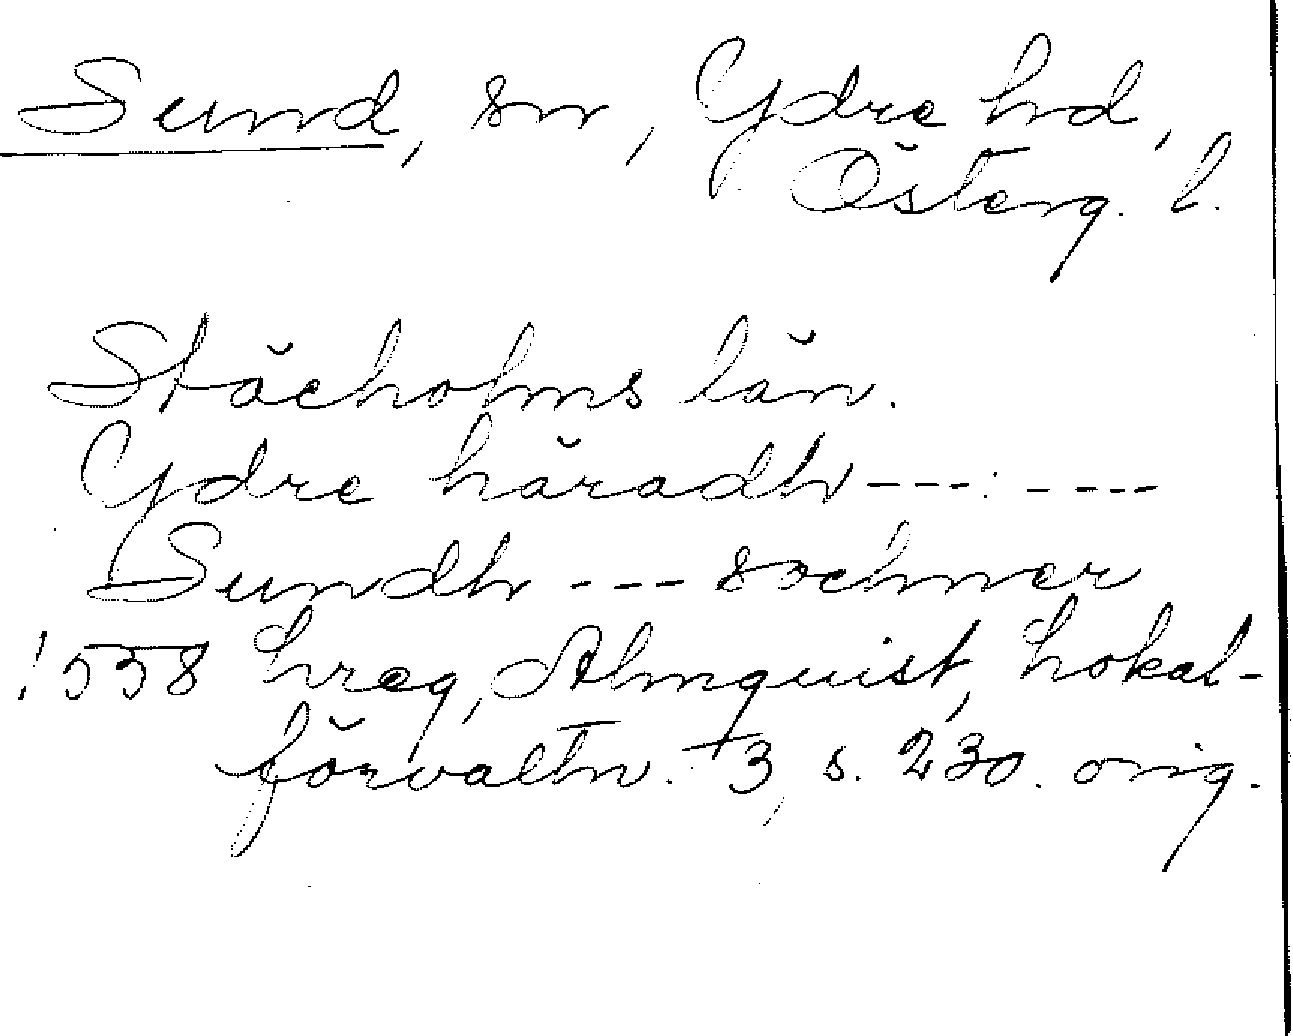 Sund, sn, Ydre hd,
Österg. l.
Stächolms län.
Ydre häradh---:----
Sundh --- sochner
1558 hreg, Almquist, Lokal-
förvaltn. +3, s. 230. orig.